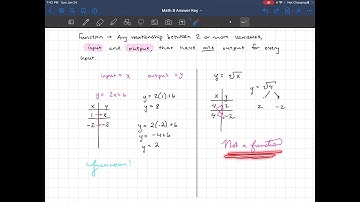 7:43 PM Sun Jan 24
Math 8 Answer Key
Not Charging
Function = Any relationship between 2 or more variables,
input and output, that have one output for every
input.
input = x output = y
y = 2x+6
x y
1 8
-2 -2
y = 2(1)+6
y = 8
y = 2(-2)+6
y = -4+6
y = 2
function!
y = √x
x y
4 2
4 -2
y = √4
2 -2
Not a function